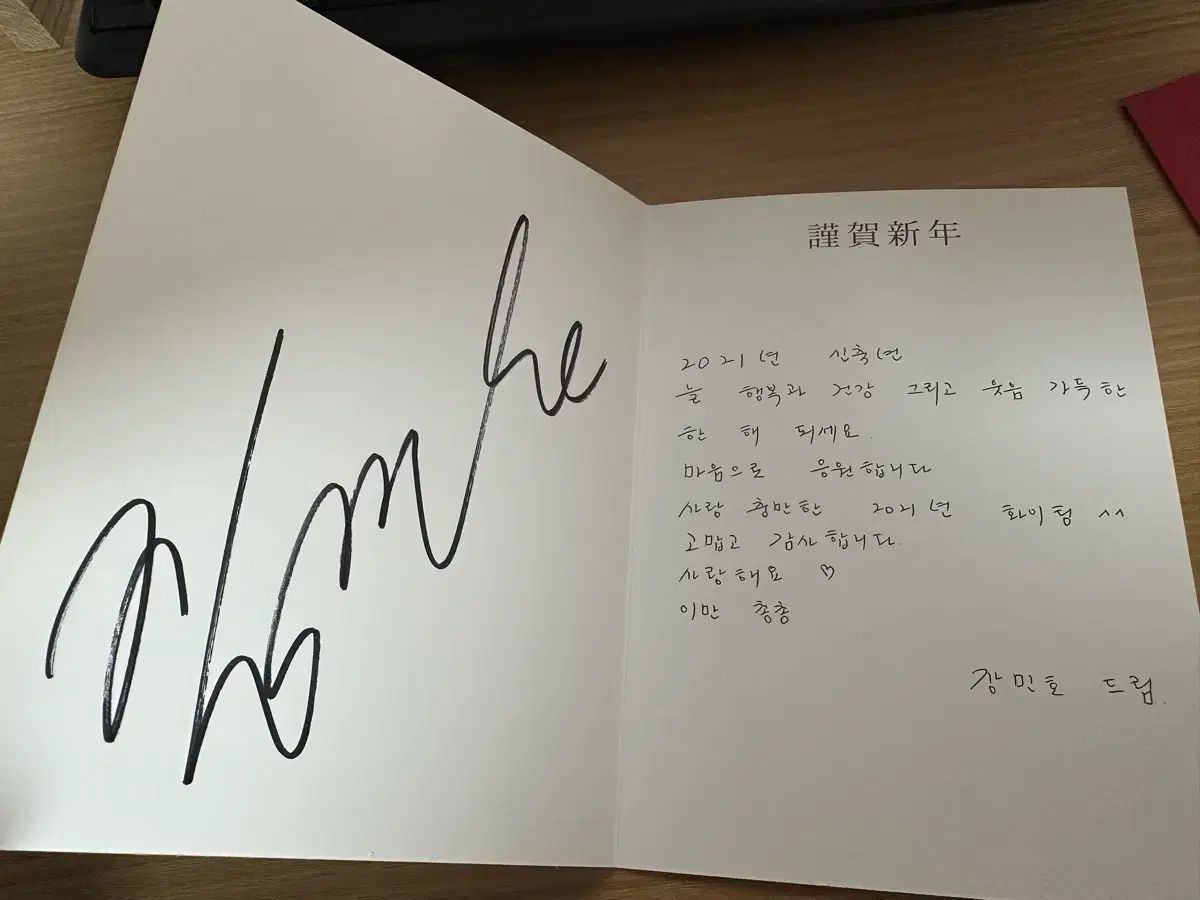 謹賀新年
2021년 신축년
늘 행복과 건강 그리고 웃음 가득한
한 해 되세요.
마음으로 응원합니다
사랑 충만한 2021년 화이팅 ^^
고맙고 감사합니다.
사랑해요 ♡
이만 총총
장민호 드림.